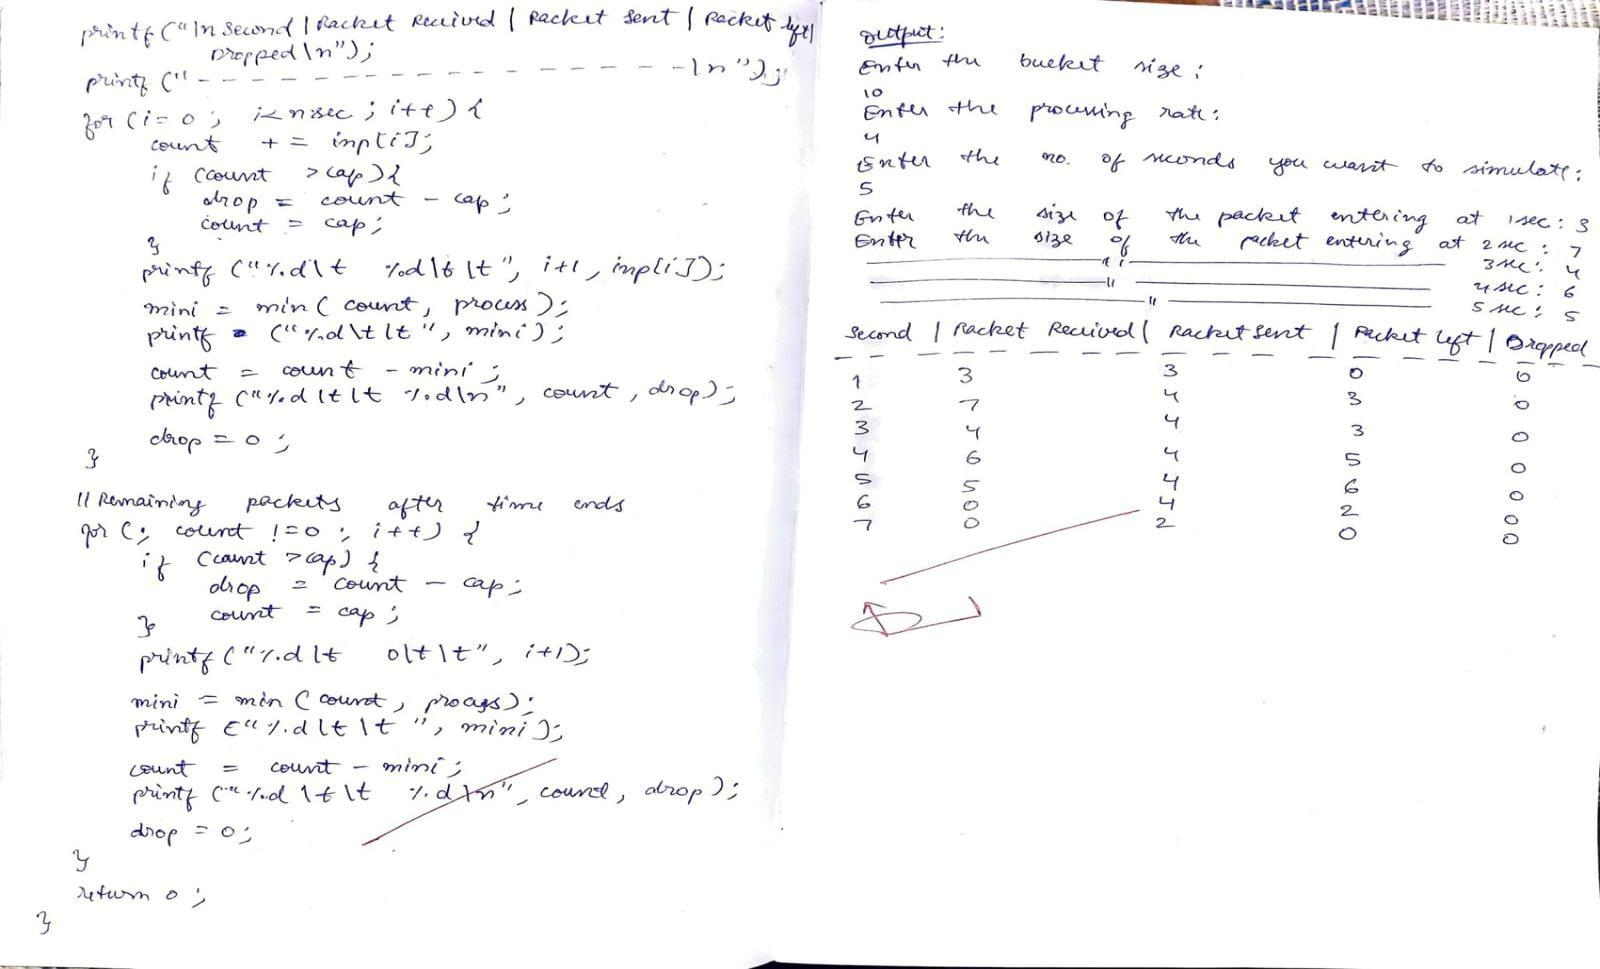 printf("\n Second | Packet Received | Packet Sent | Packet left|
Dropped \n");
printf("- - - - - - - - - - - - - - - - - -\n");
for (i=0 ; i<nsec ; i++) {
count += inp[i];
if (count >cap){
drop = count - cap;
count = cap;
}
printf ("%d\t %d\t\t", i+1, inp[i]);
mini = min( count, process);
printf ("%d\t\t", mini);
count = count - mini;
printf ("%d\t\t %d\n", count, drop);
drop = 0;
}
// Remaining packets after time ends
for (; count !=0 ; i++) {
if (count >cap) {
drop = count - cap;
count = cap;
}
printf("%d\t 0\t\t", i+1);
mini = min ( count, );
printf ("%d\t\t", mini);
count = count - mini;
printf ("%d\t\t %d\n", count, drop);
drop = 0;
}
return 0;
}
Output:
Enter the bucket size:
10
Enter the processing rate:
4
Enter the no. of seconds you want to simulate:
5
Enter the size of the packet entering at 1sec: 3
Enter the size of the packet entering at 2 sec : 7
———— " ———— 3 sec: 4
———— " ———— 4 sec: 6
———— " ———— 5 sec: 5
Second | Packet Received | Packet Sent | Packet left | Dropped
- - - - - - - - - - - - - - - - - -
1 3 3 0 0
2 7 4 3 0
3 4 4 3 0
4 6 4 5 0
5 5 4 6 0
6 0 4 2 0
7 0 2 0 0